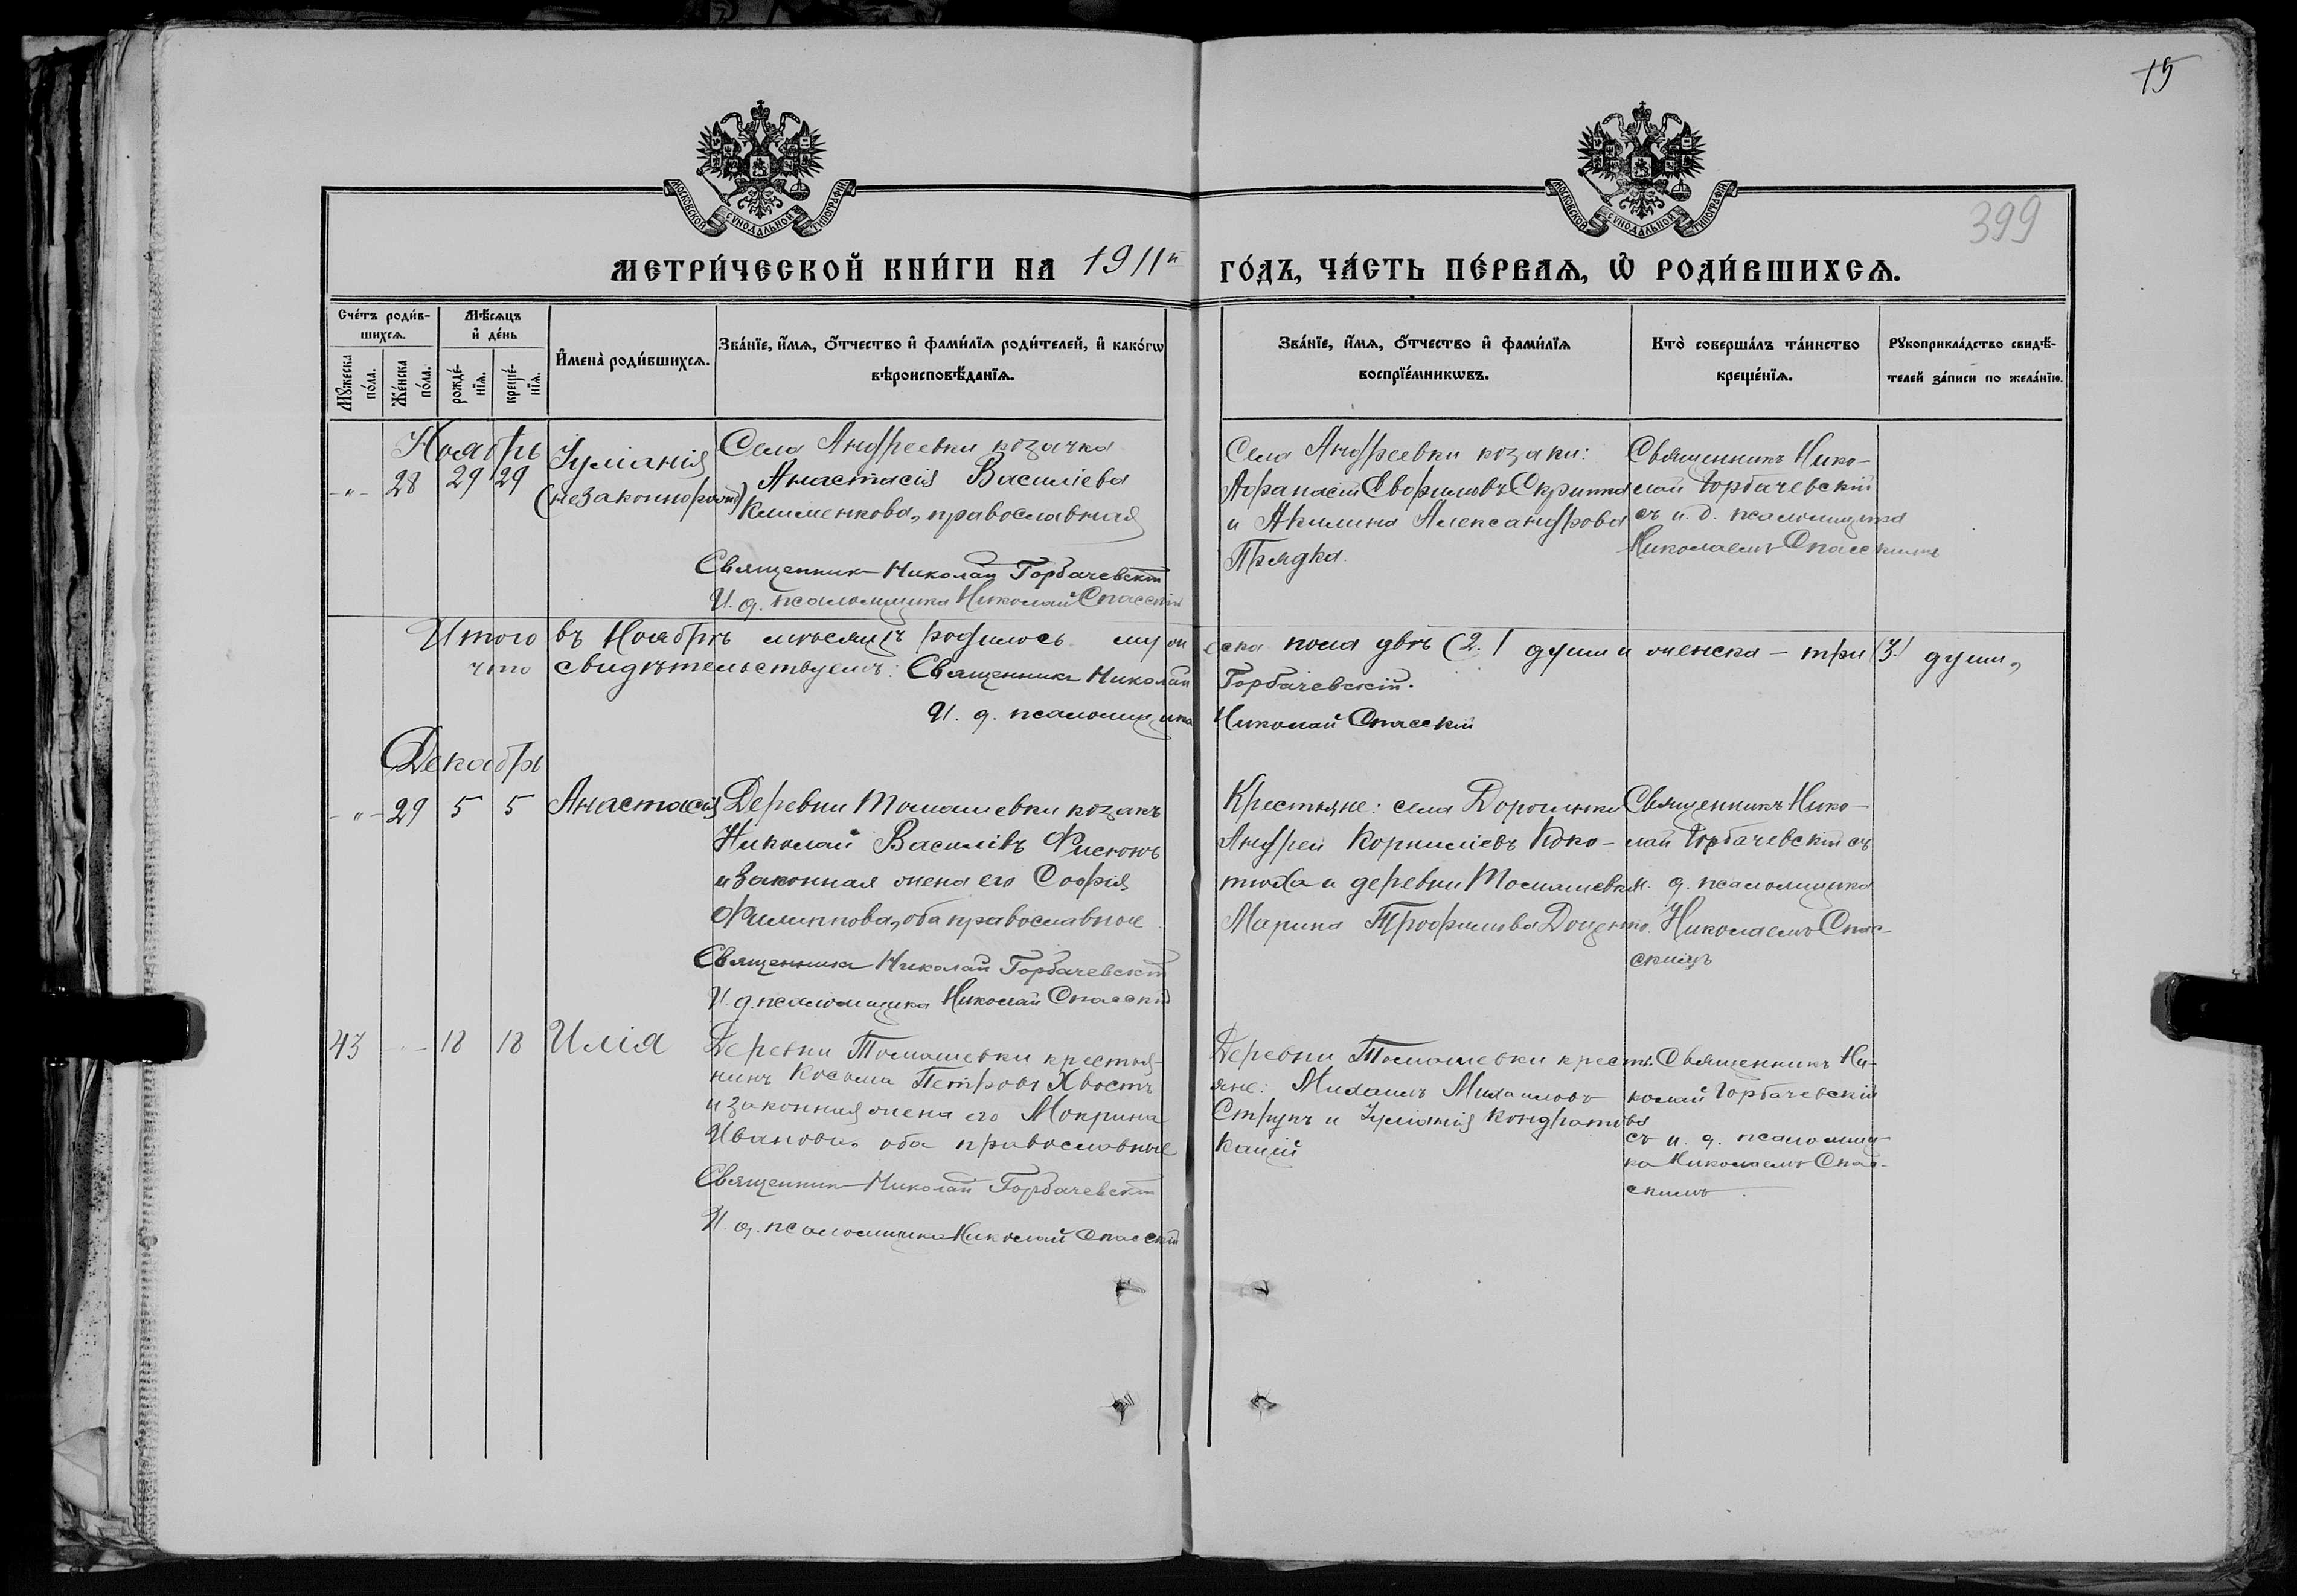 15
МОСКОВСКОЙ СУНОДАЛЬНОЙ ТИПОГРАФІИ
МОСКОВСКОЙ СУНОДАЛЬНОЙ ТИПОГРАФІИ
399
МЕТРИ́ЧЕСКОЙ КНИ́ГИ НА 1911й ГО́ДЪ, ЧА́СТЬ ПЕ́РВАѦ, Ѡ РОДИ́ВШИХСѦ.
Сче́тъ роди́в-
шихсѧ.
Мꙋжеска по́ла.
Же́нска по́ла.
Мѣ́сѧцъ
и҆ де́нь
рожде́-
нїѧ.
креще́-
нїѧ.
И҆мена̀ роди́вшихсѧ.
Зва́нїе, и҆́мѧ, ѻ҆́тчество и҆ фами́лїѧ роди́телей, и҆ како́гѡ
вѣроисповѣ́данїѧ.
Зва́нїе, и҆́мѧ, ѻ҆́тчество и҆ фами́лїѧ
воспрїе́мникѡвъ.
Кто̀ соверша́лъ та́инство
креще́нїѧ.
Рꙋкоприкла́дство свидѣ́-
телей за́писи по жела́нїю.
Ноябрь
-"- 28 29 29
Іуліанія
(незаконнорожд)
Села Андреевки козачка
Анастасія Василіева
Клименкова, православная
Священник Николай Горбачевскій
И. д. псаломщика Николай Спасскій
Села Андреевки козаки:
Афанасій Евфимовъ Скрипка
и Акилина Александрова
Прядка.
Священникъ Нико-
лай Горбачевскій
съ и. д. псаломщика
Николаемъ Спасскимъ
Итого въ Ноябрѣ мѣсяцѣ родилось мужеска пола двѣ (2.) души и женска - три (3.) души,
что свидѣтельствуемъ: Священник Николай Горбачевскій.
И. д. псаломщика Николай Спасскій
Декабрь
-"- 29 5 5 Анастасія
Деревни Томашевки козакъ
Николай Василіевъ Фисюнъ
и законная жена его Софія
Филиппова, оба православные
Священник Николай Горбачевскій
И. д. псаломщика Николай Спасскій
Крестьяне: села Дорогинки
Андрей Корниліевъ Коко-
тюха и деревни Томашевки
Марина Трофимова Доценко.
Священникъ Нико-
лай Горбачевскій съ
и. д. псаломщика
Николаемъ Спас-
скимъ
43 - 18 18 Илія
Деревни Томашевки крестья-
нинъ Косьма Петровъ Хвостъ
и законная жена его Мокрина
Иванова, оба православные
Священник Николай Горбачевскій
И. д. псаломщика Николай Спасскій
Деревни Томашевки кресть-
яне: Михаилъ Михаиловъ
Струкъ и Іуліанія Кондратова
Кацій
Священникъ Ни-
колай Горбачевскій
съ и. д. псаломщи-
ка Николаемъ Спас-
скимъ